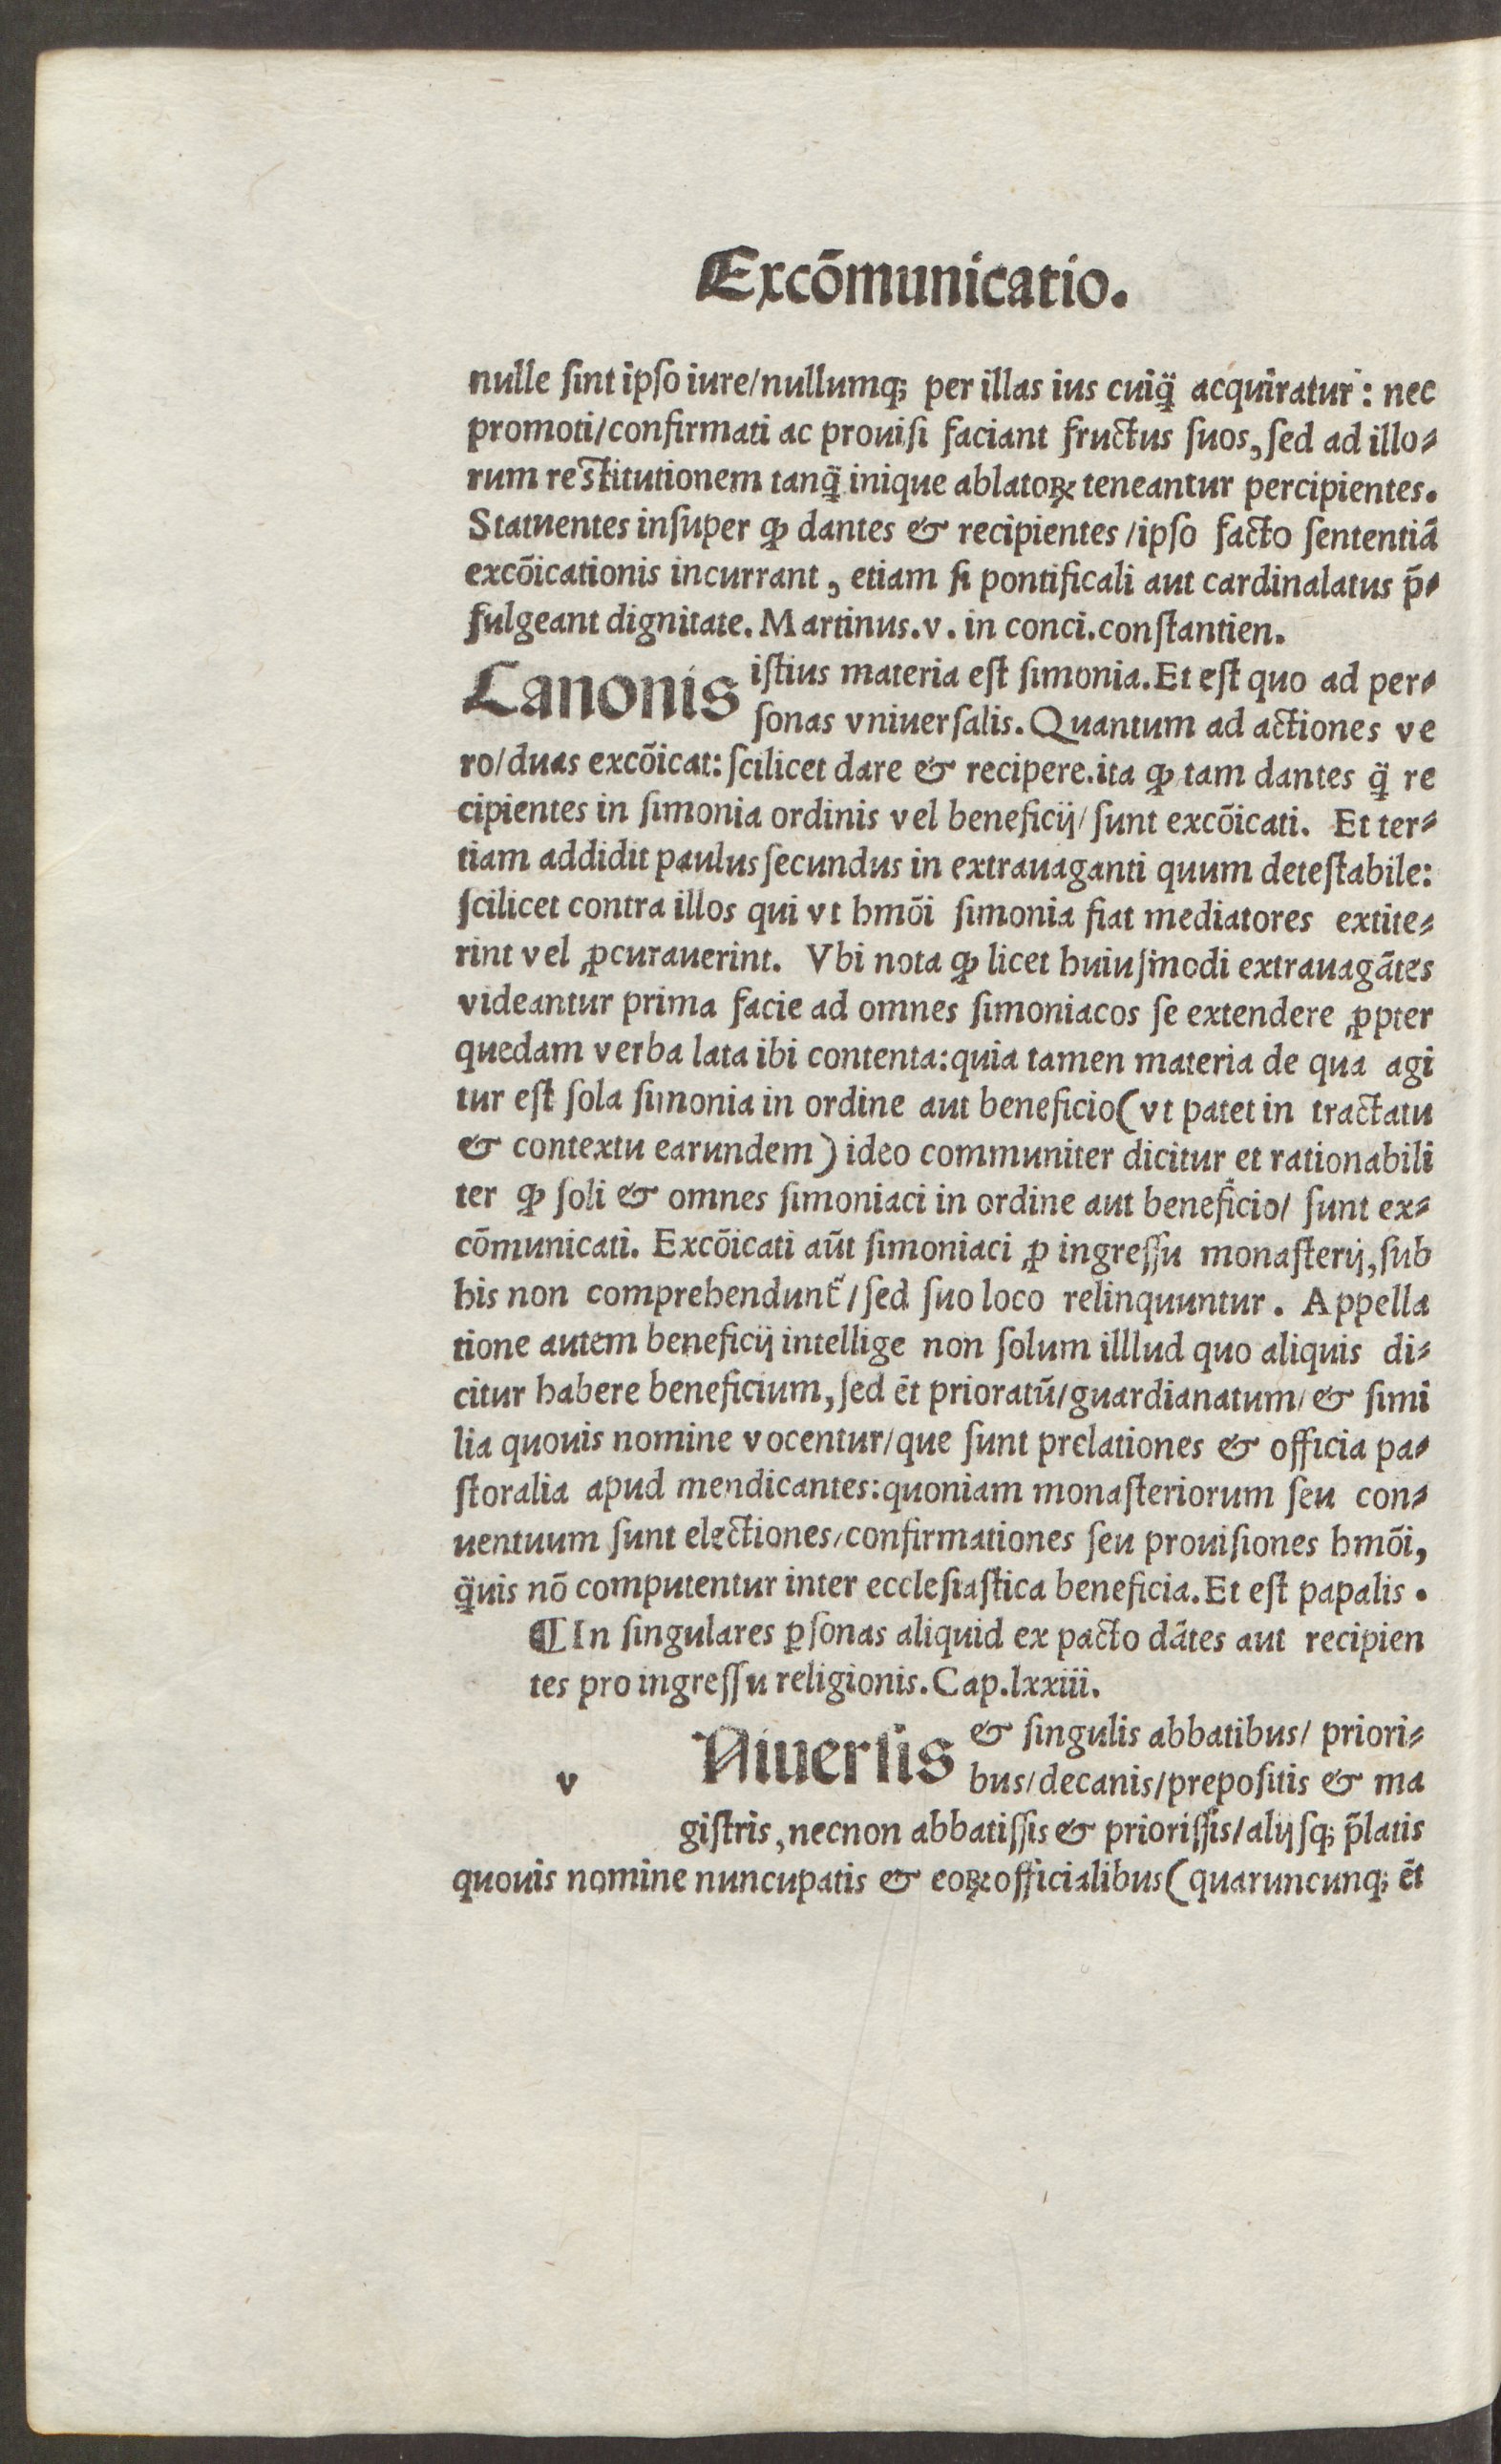 Excōmunicatio.
nulle ſint ipſo iure/nullumq; per illas ius cuiq̃ acquiratur: nec
promoti/confirmati ac prouiſi faciant fructus ſuos, ſed ad illo⸗
rum reſtitutionem tanq̃ inique ablatoꝝ teneantur percipientes.
Statuentes inſuper ꝙ dantes & recipientes/ipſo facto ſententiā
excōicationis incurrant, etiam ſi pontificali aut cardinalatus p̄⸗
fulgeant dignitate. Martinus.v. in conci.conſtantien.
Canonis iſtius materia eſt ſimonia. Et eſt quo ad per⸗
ſonas vniuerſalis. Quantum ad actiones ve
ro/duas excōicat: ſcilicet dare & recipere.ita ꝙ tam dantes q̃ re
cipientes in ſimonia ordinis vel beneficij/ſunt excōicati. Et ter⸗
tiam addidit paulus ſecundus in extrauaganti quum deteſtabile:
ſcilicet contra illos qui vt hmōi ſimonia fiat mediatores extite⸗
rint vel ꝓcurauerint. Vbi nota ꝙ licet huiuſmodi extrauagātes
videantur prima facie ad omnes ſimoniacos ſe extendere ꝓpter
quedam verba lata ibi contenta: quia tamen materia de qua agi
tur eſt ſola ſimonia in ordine aut beneficio (vt patet in tractatu
& contextu earundem) ideo communiter dicitur et rationabili
ter ꝙ ſoli & omnes ſimoniaci in ordine aut beneficio/ ſunt ex⸗
cōmunicati. Excōicati aūt ſimoniaci ꝓ ingreſſu monaſterij, ſub
his non comprehendunt᷑/ſed ſuo loco relinquuntur. Appella
tione autem beneficij intellige non ſolum illlud quo aliquis di⸗
citur habere beneficium, ſed ēt prioratū/guardianatum/& ſimi
lia quouis nomine vocentur/que ſunt prelationes & officia pa⸗
ſtoralia apud mendicantes: quoniam monaſteriorum ſeu con⸗
uentuum ſunt electiones/confirmationes ſeu prouiſiones hmōi,
q̃uis nō computentur inter eccleſiaſtica beneficia. Et eſt papalis.
¶In ſingulares ꝑſonas aliquid ex pacto dātes aut recipien
tes pro ingreſſu religionis. Cap.lxxiii.
v Niuerſis & ſingulis abbatibus/ priori⸗
bus/decanis/prepoſitis & ma
giſtris, necnon abbatiſſis & prioriſſis/alijſq; p̄latis
quouis nomine nuncupatis & eoꝝ officialibus (quaruncunq; ēt